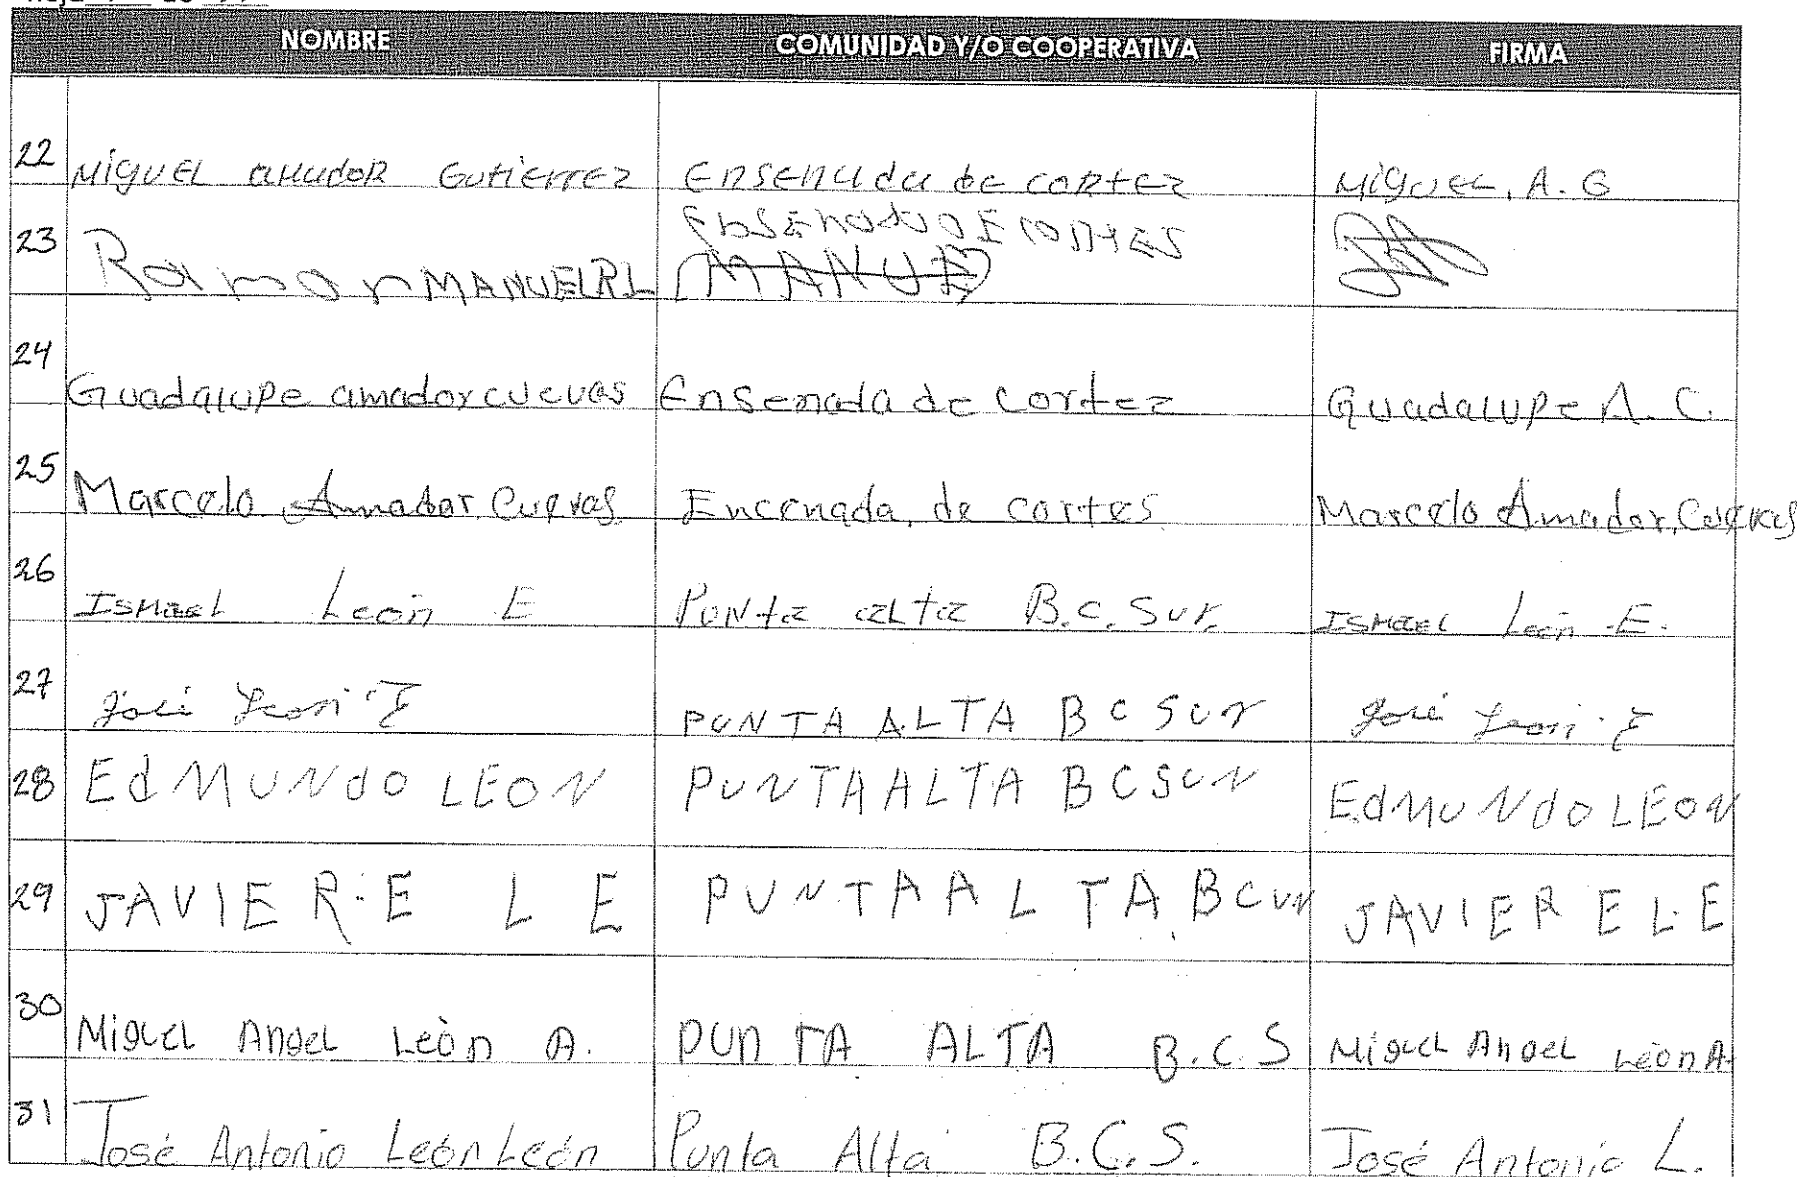 NOMBRE COMUNIDAD Y/O COOPERATIVA FIRMA
22 Miguel amador Gutierrez Ensenada de cortez Miguel. A. G
23 Ramon MANUEL R L ENSENADA DE CORTES
MANUE
24 Guadalupe amador cuevas Ensenada de cortez Guadalupe A. C.
25 Marcelo Amador Cuevas Encenada, de cortes Marcelo Amador, Cuevas
26 Ismael León E Punta alta B.C. Sur. Ismael León E.
27 José León E PUNTA ALTA B C Sur José León E
28 EdMUNdO LEON PUNTA ALTA B C Sur EdMUNdO LEON
29 JAVIER E L E PUNTA ALTA B C ur JAVIER E L E
30 Miguel Angel Leòn A. PUnTA ALTA B.C.S Miguel Angel Leòn A.
31 José Antonio León León Punta Alta B.C.S. José Antonio L.